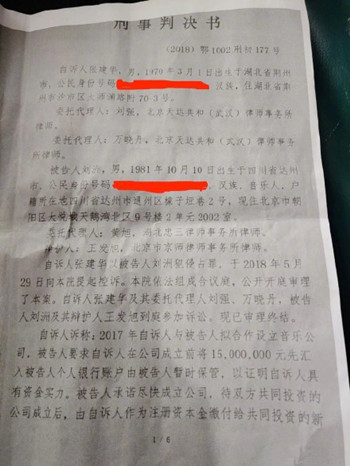 刑事判决书
(2018)鄂1002刑初177号
自诉人张建华，男，1970年3月1日出生于湖北省荆州
市，公民身份号码 汉族，住湖北省荆
州市沙市区大师湾路附70 3号。
委托代理人：刘强，北京天达共和（武汉）律师事务所
律师。
委托代理人：万晓丹，北京天达共和（武汉）律师事务
所律师。
被告人刘洲，男，1981年10月10日出生于四川省达州
市，公民身份号码 ，汉族，音乐人，户
籍所在地四川省达州市通州区横子垣巷2号，现住北京市朝
阳区大悦城天鹅湾北区9号楼2单元2002室。
委托代理人：黄州，湖北思三律师事务所律师。
辩护人：王发旭，北京市京师律师事务所律师。
自诉人张建华以被告人刘洲犯侵占罪，于2018年5月
29日向本院提起控诉。本院依法组成合议庭，公开开庭审理
了本案。自诉人张建华及其委托代理人刘强、万晓丹，被告
人刘洲及其辩护人王发旭到庭参加诉讼。现已审理终结。
自诉人诉称：2017年自诉人与被告人拟合作设立音乐公
司，被告人要求自诉人在公司成立前将15,000,000元先汇
入被告人个人银行账户由被告人暂时保管，以证明自诉人具
有资金实力。被告人承诺尽快成立公司，待双方共同投资的
公司成立后，由自诉人作为注册资本金缴付给共同投资的新
1/6